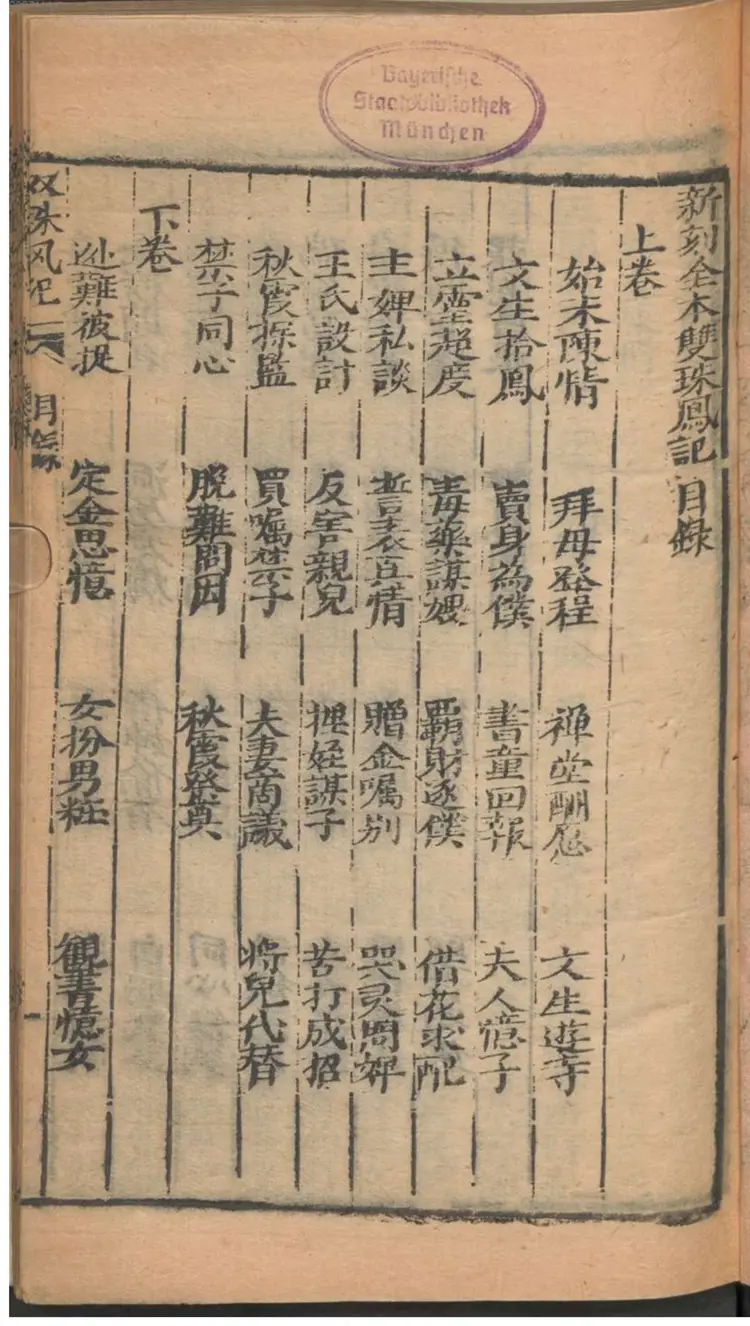 Bayerische
Staatsbibliothek
München
新刻全本雙珠鳳記目録
上卷
始末陳情 拜母登程 禪堂酬愿 文生遊寺
文生拾鳳 賣身為僕 書童回報 夫人憶子
立靈超度 毒藥謀嫂 覇財逐僕 借花求配
主婢私談 誓表真情 贈金嘱别 哭灵問婢
王氏設計 反害親兒 捏姪謀子 苦打成招
秋霞探监 買嘱禁子 夫妻啇議 将兒代替
禁子同心 脱難問因 秋霞祭奠
下卷
逊難彼捉 定金思憶 女扮男粧 觀書憶女
双珠凤记 目録